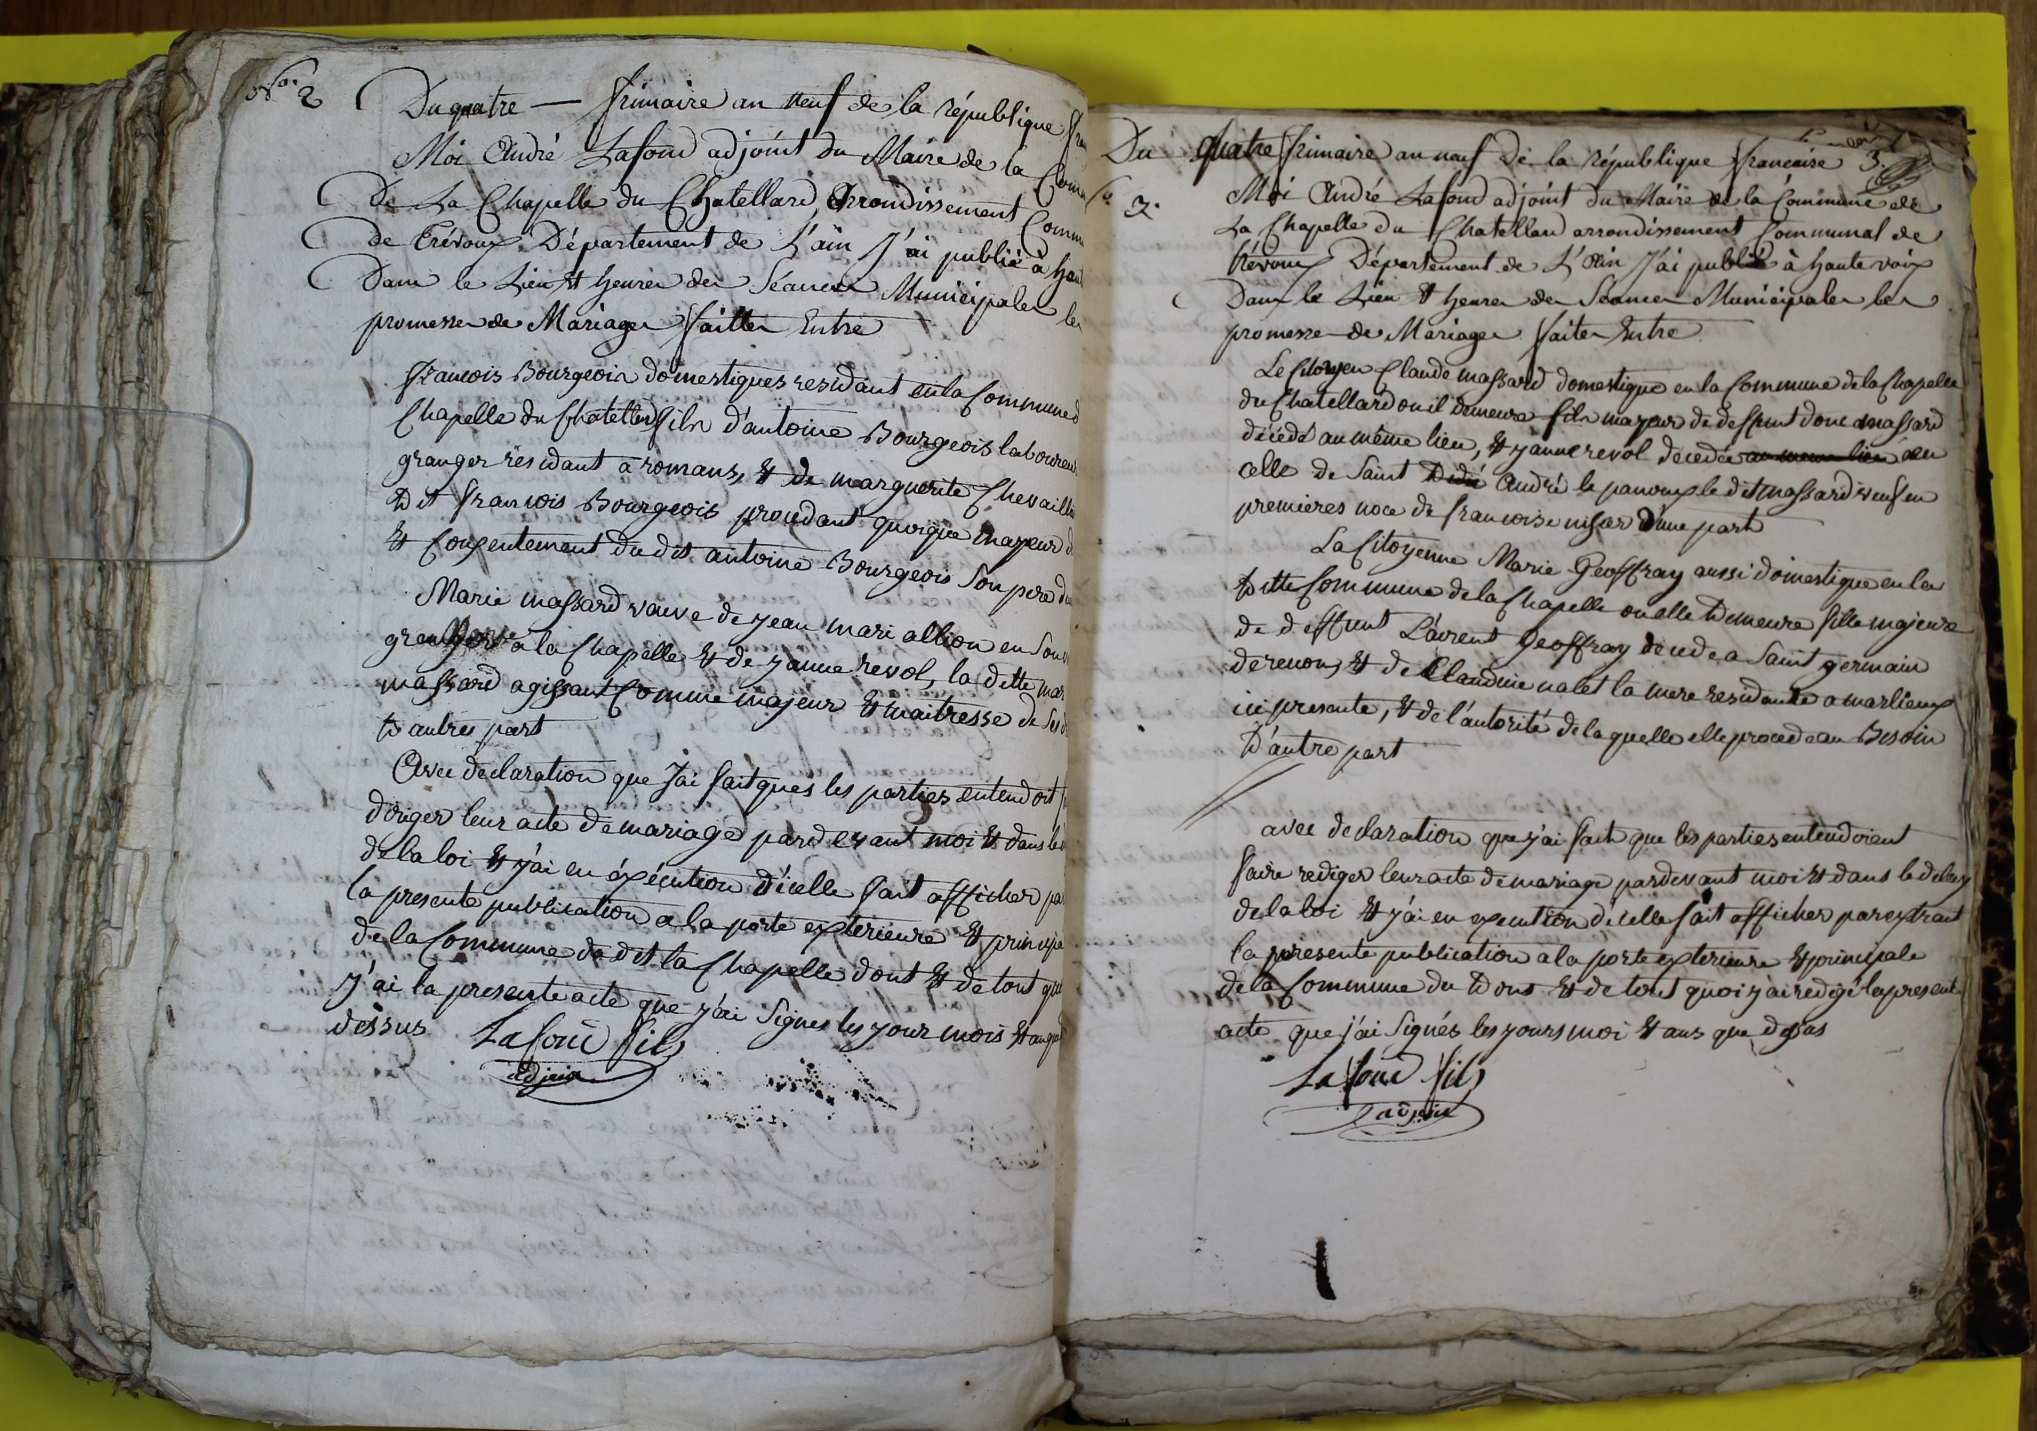 No. 2
Du quatre — frimaire an neuf de la république
Moi André Lafond adjoint du Maire de la
De La Chapelle du Chatellard Arrondissement Comm
de Trévoux Département de L'ain J'ai publié à hau
Dans le Lieu & heures des Séances Municipales les
promesses de Mariages faittes Entre
francois Bourgeois domestiques residant en la Commune d
Chapelle du Chatellard fils d'antoine Bourgeois laboureur
granger residant a romans, & de marguerite Chevaill
Dit francois Bourgeois procedant quoique mayeur d
& Consentement du dit antoine Bourgeois Son pere d
Marie massard vauve de jean mari allion en Son
granger a la Chapelle & de yanne revol, la ditte mar
massard agissant Comme majeur & maitresse de Ses d
D autres part
Avec declaration que J'ai fait ques les parties entendoit
doriger leur acte de mariage pardevant moi & dans le
de la loi & j'ai en éxécution d'icelle fait afficher pa
la presente publication a la porte extérieure & principa
de la Commune du dit la Chapelle dont & de tout quoi
J'ai la presente acte que j'ai Signes les jour mois & an que
dessus Lafond fils
adjoint
3.
Du quatre frimaire an neuf de la république francaise
No. 3.
Moi André Lafond adjoint du Maire de la Commune de
La Chapelle du Chatellard arrondissement Communal de
trévoux Département de L'Ain J'ai publié à haute voix
Dans le Lieu & heures des Séances Municipales les
promesses de Mariages faites Entre
Le Citoyen Claude massard domestique en la Commune de la Chapelle
du Chatellard ou il demeure fils mayeur de deffunt donc massard
décédé au même lieu, & yanne revol decedée au meme lieu en
celle de Saint Didié André le panoux le dit massard veuf en
premieres noce de francoise nisier d'une part
La Citoyenne Marie Geoffray aussi domestique en la
Ditte Commune de la Chapelle ou elle Demeure fille majeure
de deffunt Laurent Geoffray decede a Saint germain
de renon, & de Claudine nalet la mere residante a marlieux
ici presente, & de l'autorité de laquelle elle procede au Besoin
D'autre part
avec declaration que j'ai fait que les parties entendoient
faire rediger leur acte de mariage pardevant moi & dans le delay
de la loi & j'ai en execution d'icelle fait afficher par extrait
la presente publication a la porte exterieure & principale
de la Commune du Dont & de tout quoi j'ai redigé la presente
acte que j'ai Signés les jours moi & ans que dessas
Lafond fils
adjoint